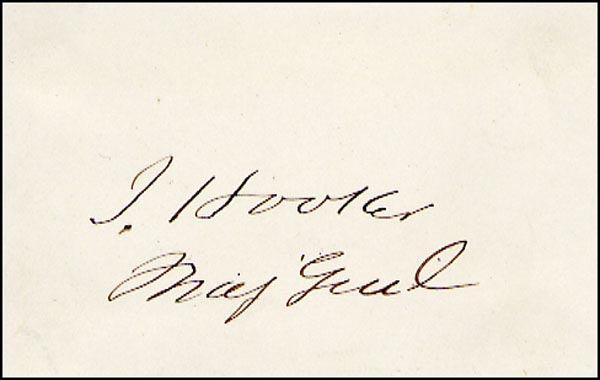 J. Hooker
Maj Genl